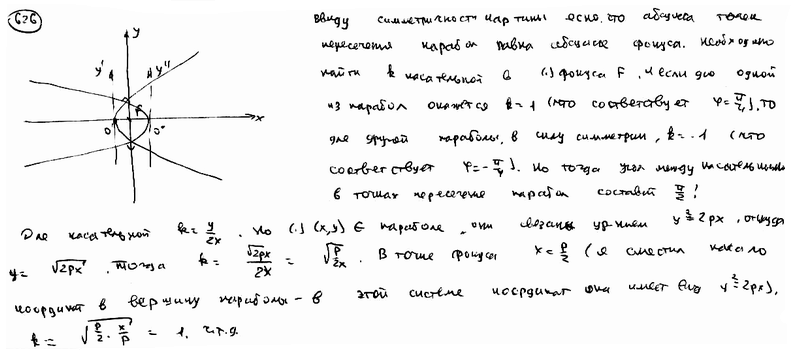 626
y
y' y''
F
x
O' O''
ввиду симметричности картины ясно, что абсцисса точек
пересечения парабол равна абсциссе фокуса. Необходимо
найти k касательной в (.) фокуса F, и если для одной
из парабол окажется k = 1 (что соответствует φ = π/4), то
для другой параболы, в силу симметрии, k = -1 (что
соответствует φ = -π/4). Но тогда угол между касательными
в точках пересечения парабол составит π/2!
Для касательной k = y/2x. Но (.) (x,y) ∈ параболе, они связаны ур-нием y² = 2px, откуда
y = √2px, тогда k = √2px/2x = √p/2x. В точке фокуса x = p/2 (я сместил начало
координат в вершину параболы - в этой системе координат она имеет вид y² = 2px),
k = √p/2 · x/p = 1, ч.т.д.